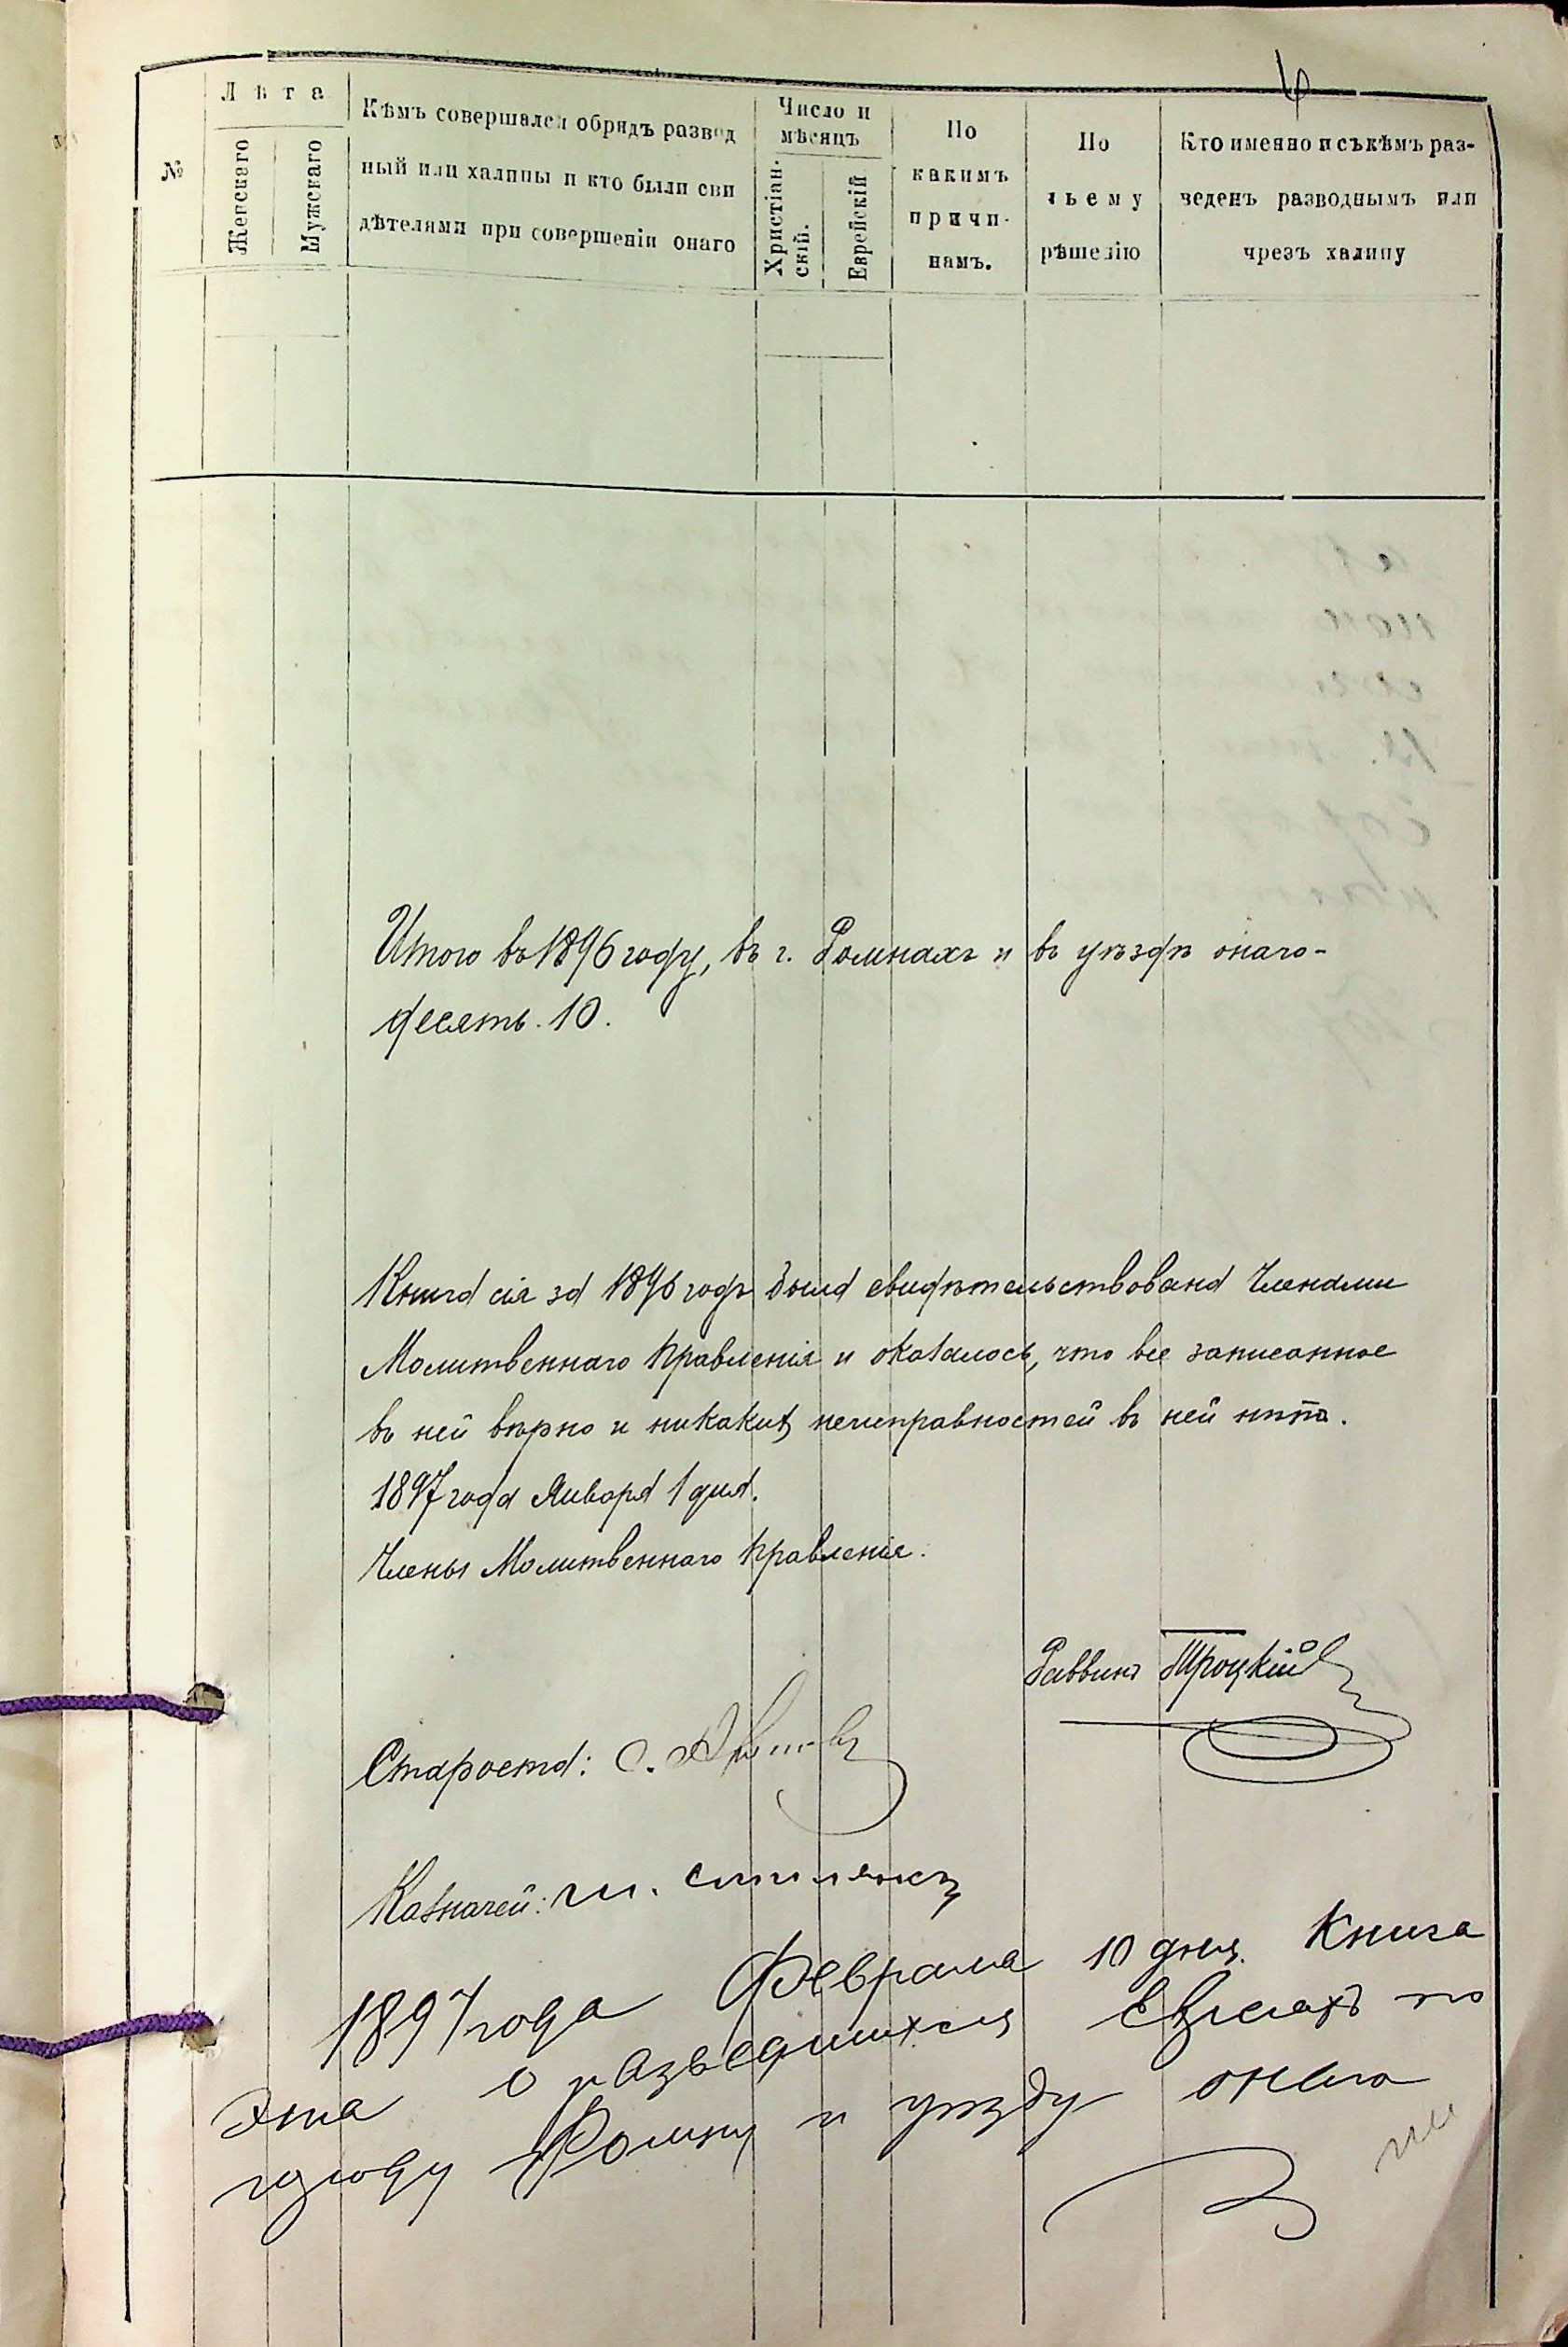 №
Лѣта
Женскаго
Мужскаго
Кѣмъ совершался обрядъ развод
ный или халицы и кто были сви
дѣтелями при совершеніи онаго
Число и
мѣсяцъ
Христіан-
скій.
Еврейскій
По
какимъ
причи-
намъ.
По
чьему
рѣшенію
Кто именно и съ кѣмъ раз-
веденъ разводнымъ или
чрезъ халицу
Итого въ 1896 году, въ г. Ромнахъ и въ уѣздѣ онаго-
десять. 10.
Книга сія за 1896 годъ была свидѣтельствована Членами
Молитвеннаго Правленія и оказалось, что все записанное
въ ней вѣрно и никакихъ неисправностей въ ней нѣтъ.
1897 года Января 1 дня.
Члены Молитвеннаго Правленія.
Раввинъ Троцкій
Староста: С.
Казначей: Ш.
1897 года Февраля 10 дня. Книга
эта о разведшихся Евреяхъ по
городу Ромну и уѣзду онаго